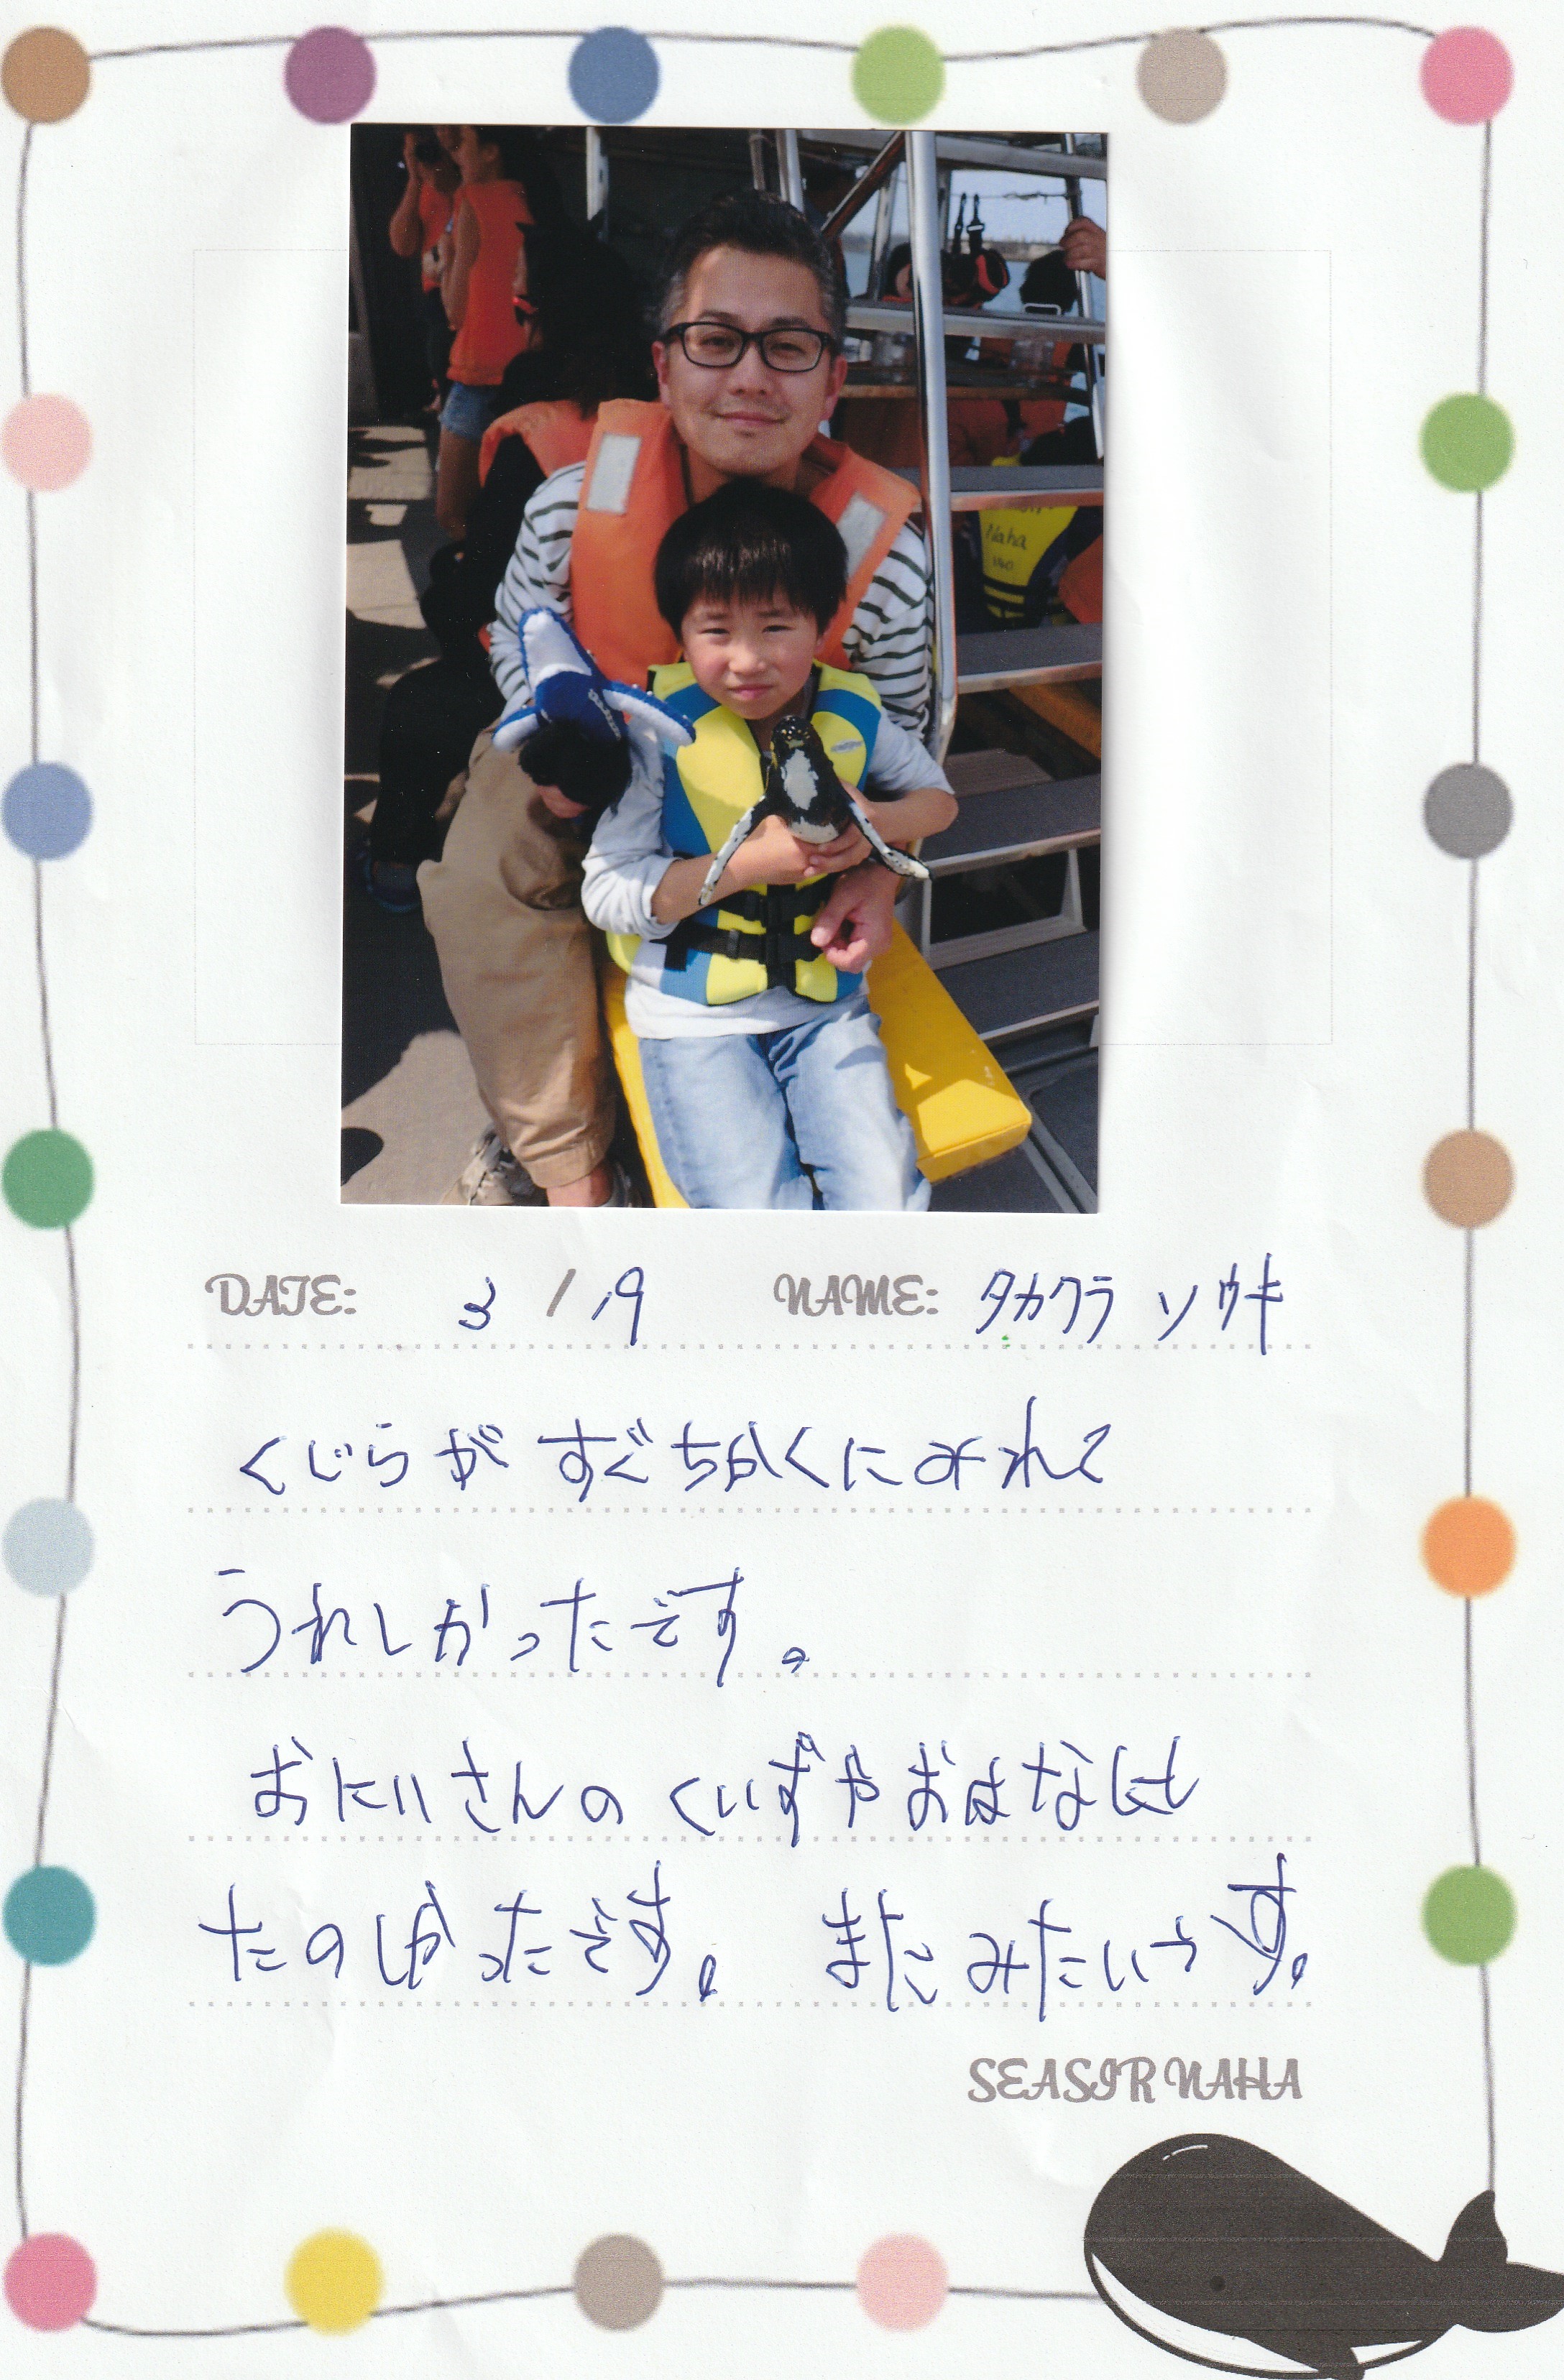 Naha
140
DATE: 3 / 19 NAME: タカクラ ソウキ
くじらが すぐちかくにみれて
うれしかったです。
おにいさんの くいずやおはなしも
たのしかったです。 またみたいです。
SEASIR NAHA